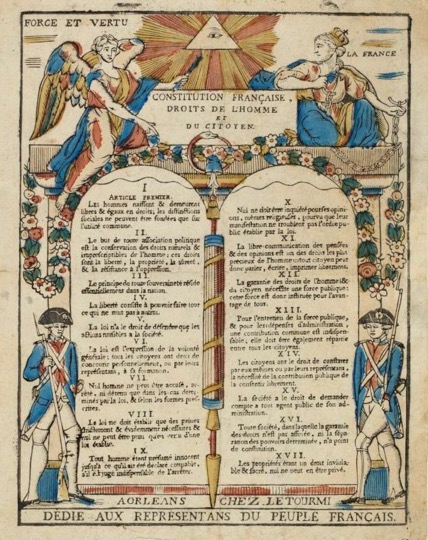 FORCE ET VERTU
LA FRANCE
CONSTITUTION FRANÇAISE.
DROITS DE L'HOMME
ET
DU CITOYEN.
I
ARTICLE PREMIER.
Les hommes naissent & demeurent
libres & égaux en droits; les distinctions
sociales ne peuvent être fondées que sur
l'utilité commune.
II.
Le but de toute association politique
est la conservation des droits naturels &
imprescriptibles de l'homme; ces droits
sont la liberté, la propriété, la sûreté,
& la résistance à l'oppression.
III
Le principe de toute souveraineté réside
essentiellement dans la nation.
IV.
La liberté consiste à pouvoir faire tout
ce qui ne nuit pas à autrui.
V.
La loi n'a le droit de défendre que les
actions nuisibles à la société.
VI.
La loi est l'expression de la volonté
générale; tous les citoyens ont droit de
concourir personnellement, ou par leurs
représentans, à sa formation.
VII.
Nul homme ne peut être accusé, arrêté,
ni détenu que dans les cas déterminés
par la loi, & selon les formes prescrites.
VIII.
La loi ne doit établir que des peines
strictement & évidemment nécessaires &
nul ne peut être puni qu'en vertu d'une
loi établie.
IX
Tout homme étant présumé innocent
jusqu'à ce qu'il ait été déclaré coupable,
s'il est jugé indispensable de l'arrêter.
X.
Nul ne doit être inquiété pour ses opinions,
même religieuses, pourvu que leur
manifestation ne troublent pas l'ordre public
établie par la loi.
XI.
La libre communication des pensées
& des opinions est un des droits les plus
précieux de l'homme; tout citoyen peut
donc parler, écrire, imprimer librement.
XII.
La garantie des droits de l'homme &
du citoyen nécessite une force publique;
cette force est donc instituée pour l'avantage
de tous.
XIII.
Pour l'entretien de la force publique,
& pour les dépenses d'administration,
une contribution commune est indispensable;
elle doit être également répartie
entre tous les citoyens.
XIV.
Les citoyens ont le droit de constater
par eux mêmes ou par leurs représentans,
la nécessité de la contribution publique de
la consentir librement.
XV.
La société a le droit de demander
compte à tout agent public de son administration.
XVI.
Toute société, dans laquelle la garantie
des droits n'est pas assurée, ni la séparation
des pouvoirs déterminée, n'a point
de constitution.
XVII.
Les propriétés étant un droit inviolable
& sacré, nul ne peut en être privé.
A ORLEANS CHEZ LETOURMI
DÉDIÉ AUX REPRESENTANS DU PEUPLE FRANÇAIS.